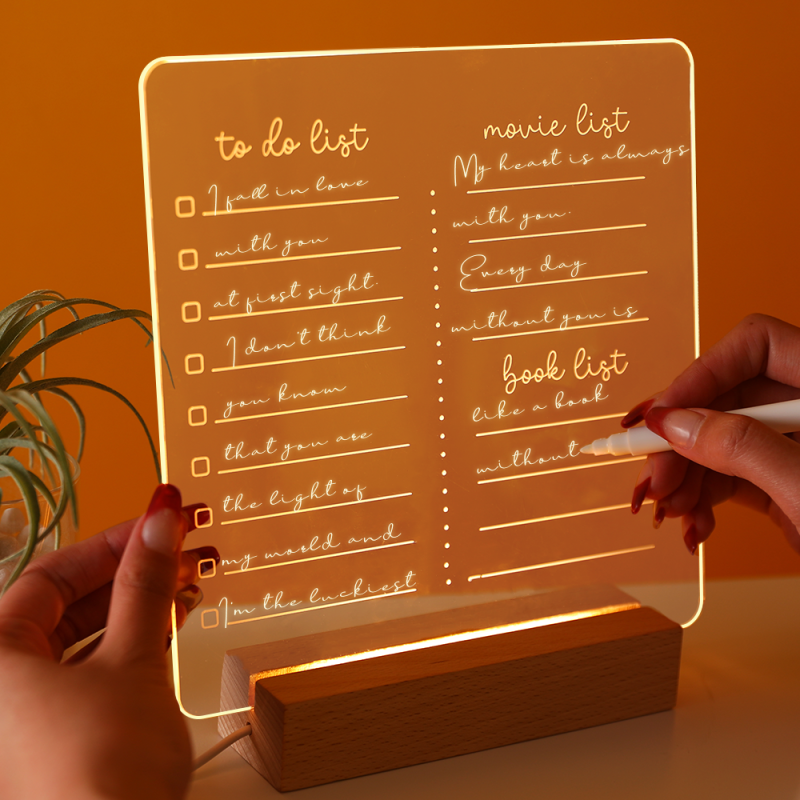 to do list
I fall in love
with you
at first sight.
I don't think
you know
that you are
the light of
my world and
I'm the luckiest
movie list
My heart is always
with you.
Every day
without you is
book list
like a book
without